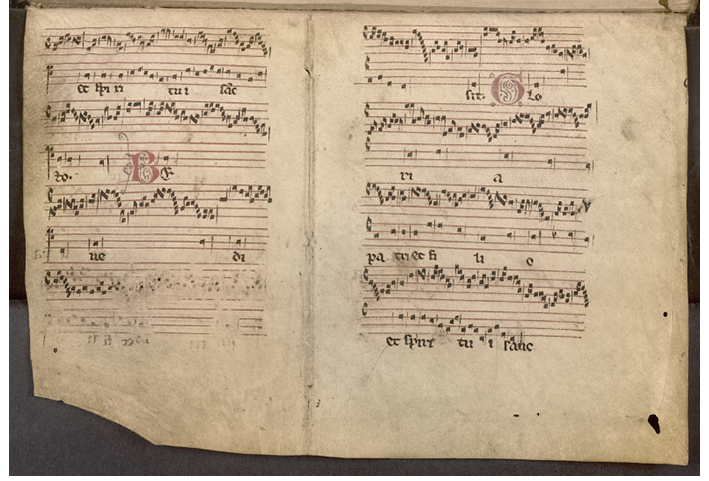 et spiri tui sāc
to. BE
ne di
sit. Glo
ri a
pa tri et fi li o
et spiri tu i sanc